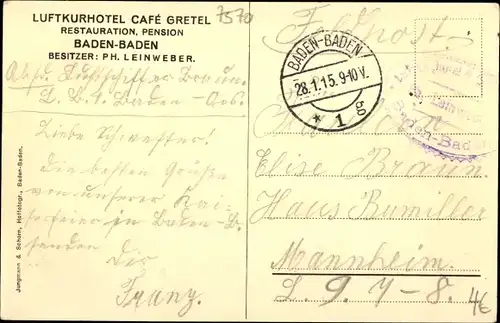 LUFTKURHOTEL CAFÉ GRETEL
RESTAURATION, PENSION
BADEN-BADEN
BESITZER: PH. LEINWEBER.
7570
Feldpost.
BADEN-BADEN
28.1.15.9-10V.
* 1 b
Baden-Baden
Abs. Luftschiffer Braun.
Baden-Oos.
Liebe Schwester!
Die besten Grüße
von unserer Kai-
serfeier in Baden-B.
senden
Dir
Franz.
Fräulein
Elise Braun
Haus Bumiller
Mannheim
L. 9. 7-8.
4€
Jungmann & Schorn, Hoffotogr., Baden-Baden.